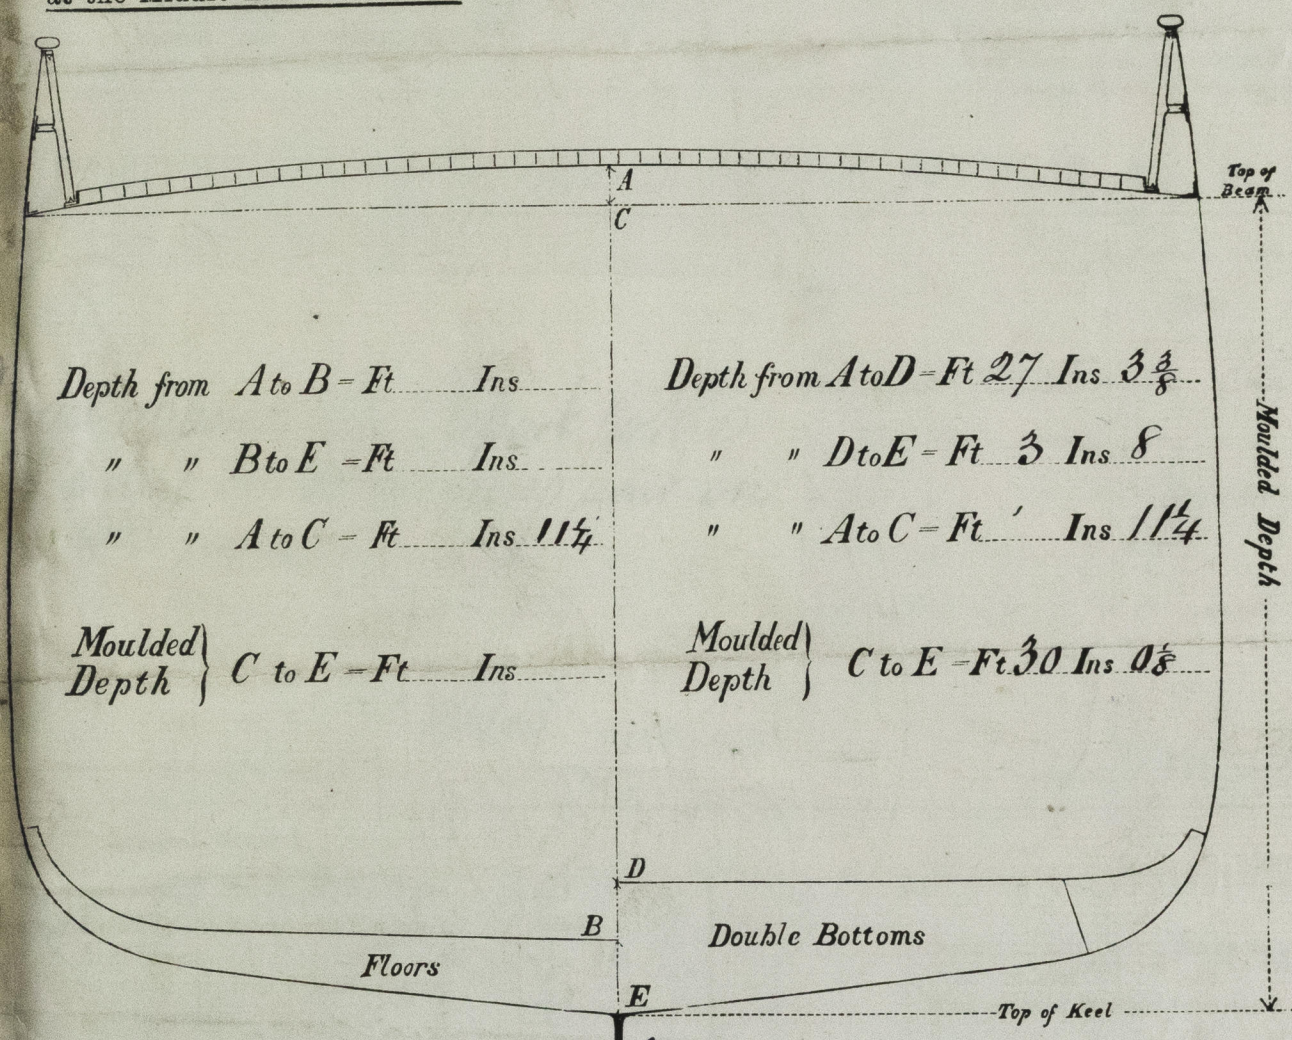 A
C
Top of
Beam
Depth from A to B = Ft Ins
" " B to E = Ft Ins
" " A to C = Ft Ins 11 1/4
Moulded Depth } C to E = Ft Ins
Depth from A to D = Ft 27 Ins 3 3/8
" " D to E = Ft 3 Ins 8
" " A to C = Ft ' Ins 11 1/4
Moulded Depth } C to E = Ft 30 Ins 0 1/8
Moulded Depth
D
B
Double Bottoms
Floors
E
Top of Keel